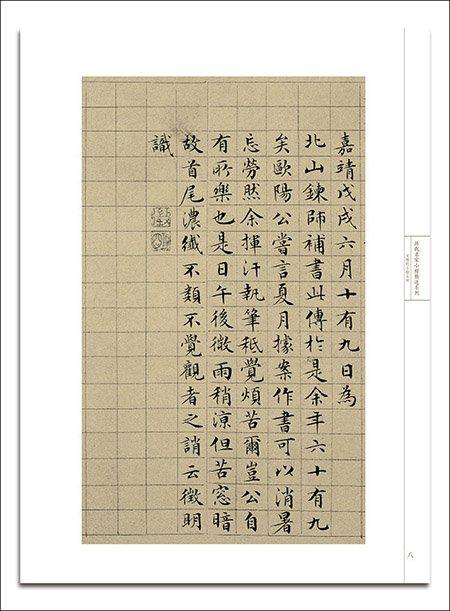 嘉靖戊戌六月十有九日為
北山鍊師補書此傳於是余年六十有九
矣歐陽公嘗言夏月據案作書可以消暑
忘勞然余揮汗執筆秪覺煩苦爾豈公自
有所樂也是日午後微雨稍涼但苦窓暗
故首尾濃纖不類不覺觀者之誚云徵明
識
历代名家小楷精选系列
八